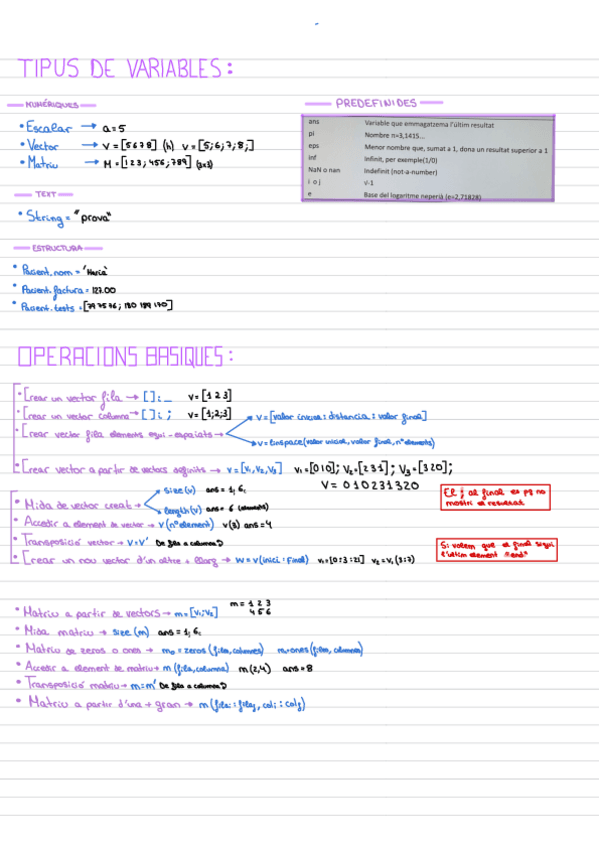 TIPUS DE VARIABLES:
NUMÈRIQUES
• Escalar → a=5
• Vector → V=[5678] (h) V=[5;6;7;8;]
• Matriu → M=[123;456;789] (3x3)
PREDEFINIDES
ans Variable que emmagatzema l'últim resultat
pi Nombre π=3,1415...
eps Menor nombre que, sumat a 1, dona un resultat superior a 1
inf Infinit, per exemple(1/0)
NaN o nan Indefinit (not-a-number)
i o j √-1
e Base del logaritme neperià (e=2,71828)
TEXT
• String = "prova"
ESTRUCTURA
• Pacient.nom = 'Maria'
• Pacient.factura = 127.00
• Pacient.tests = [79 75 76; 180 189 170]
OPERACIONS BASIQUES:
• Crear un vector fila → []:_ V=[1 2 3]
• Crear un vector columna → []: ; V=[1;2;3]
• Crear vector fila elements equi-espaiats →
V=[valor inicial:distancia:valor final]
V=linspace(valor inicial, valor final, nº elements)
• Crear vector a partir de vectors definits → V=[V₁,V₂,V₃] V₁=[010]; V₂=[231]; V₃=[320];
V= 010231320
• Mida de vector creat →
size(v) ans = 1, 6.
length(v) ans = 6 (elements)
• Accedir a element de vector → v(nº element) v(3) ans=4
• Transposició vector → V=V' De fila a columna
• Crear un nou vector d'un altre + llarg → W=v(inici:Final) V₁=[0:3:21] V₂=V₁(3:7)
El ; al final es pq no
mostri el resultat
Si volem que el final sigui
l'últim element "end"
• Matriu a partir de vectors → m=[V₁;V₂]
m= 1 2 3
4 5 6
• Mida matriu → size (m) ans = 1, 6.
• Matriu de zeros o ones → m₀=zeros (fila,columnes) m₁=ones(files, columnes)
• Accedir a element de matriu → m (fila,columna) m(2,4) ans=8
• Transposició matriu → m=m' De fila a columna
• Matriu a partir d'una + gran → m(filai:filaj, coli:colj)